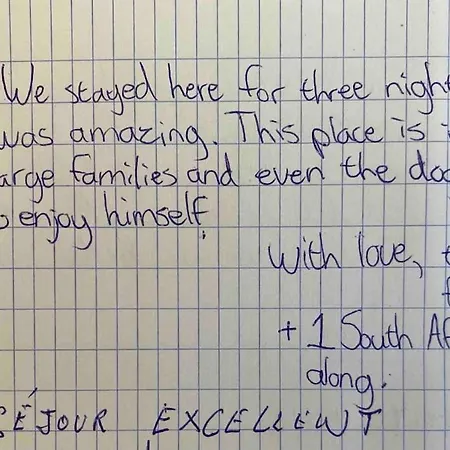 We stayed here for three nigh
was amazing. This place is
arge families and even the do
o enjoy himself.
With love,
+ 1 South Af
along.
SÉJOUR EXCELLENT